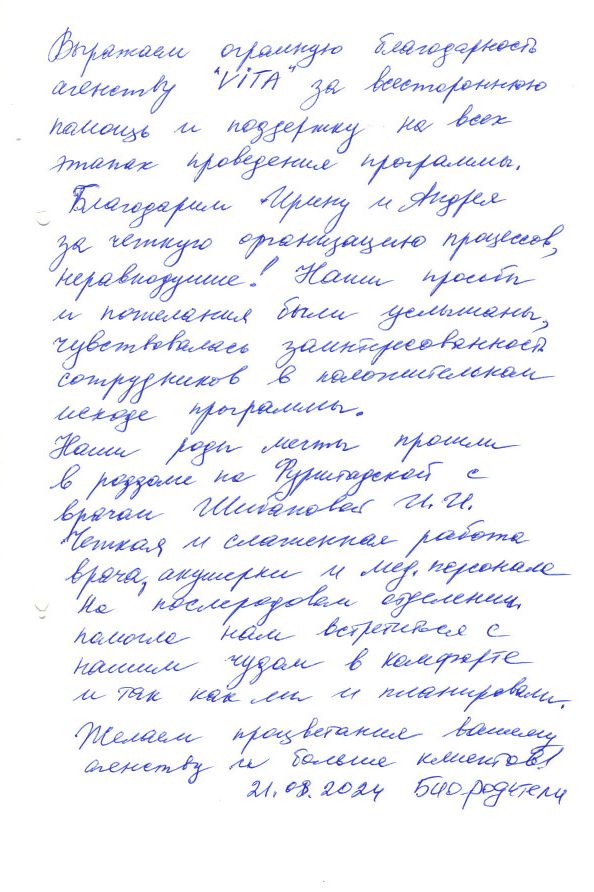 Выражаем огромную благодарность
агенству "ViTA" за всестороннюю
помощь и поддержку на всех
этапах проведения программы.
Благодарим Ирину и Андрея
за четкую организацию процессов,
неравнодушие! Наши просьбы
и пожелания были услышаны,
чувствовалась заинтересованность
сотрудников в положительном
исходе программы.
Наши роды мечты прошли
в роддоме на Фурштадской с
врачом Шибановой И.И.
Четкая и слаженная работа
врача, акушерки и мед. персонала
на послеродовом отделении
помогла нам встретиться с
нашим чудом в комфорте
и так как мы и планировали.
Желаем процветания вашему
агенству и больше клиентов!
21.08.2024 Биородители